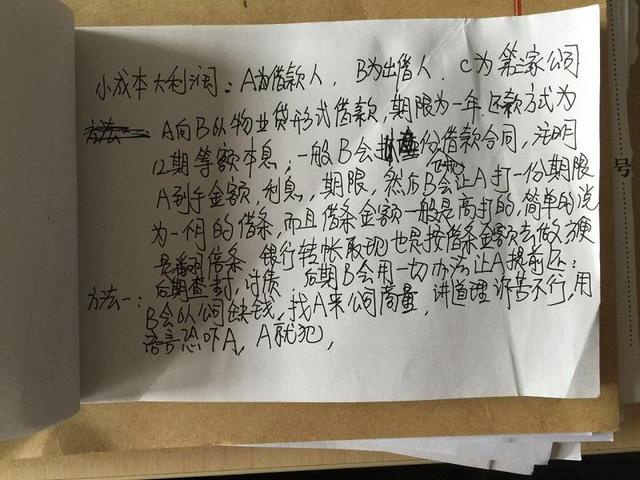 小成本大利润：A为借款人，B为出借人，C为第家公司
A向B以物业贷形式借款，期限为一年，还款方式为
12期等额本息，一般B会 份借款合同，注明
A到手金额，利息，期限，然后B会让A打一份期限
为一个月的借条，而且借条金额一般是高打的，简单的说
是翻倍条，银行转帐取现也是按借条金额去做，方便
后期查封，讨债 后期B会用一切办法让A提前还：
方法一：B会以公司缺钱，找A来公司商量，讲道理诉苦不行，用
语言恐吓A，A就犯，
号